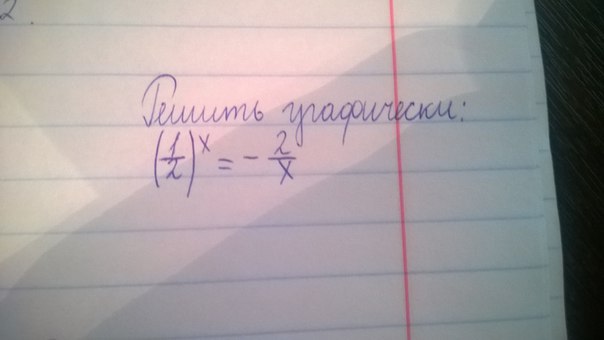 2.
Решить графически:
(1/2)^x = - 2/x